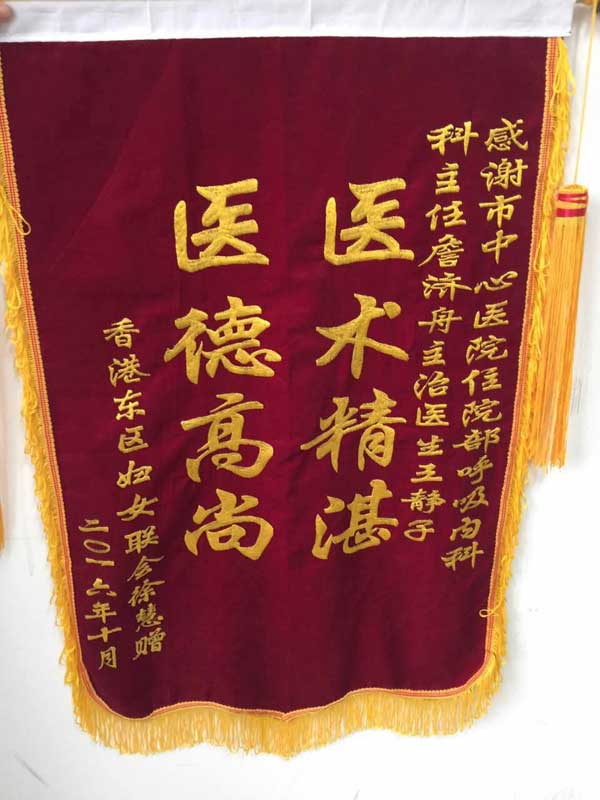 感谢市中心医院住院部呼吸内科
科主任詹济舟主治医生王静子
医术精湛
医德高尚
香港东区妇女联会徐慧赠
二〇一六年十月